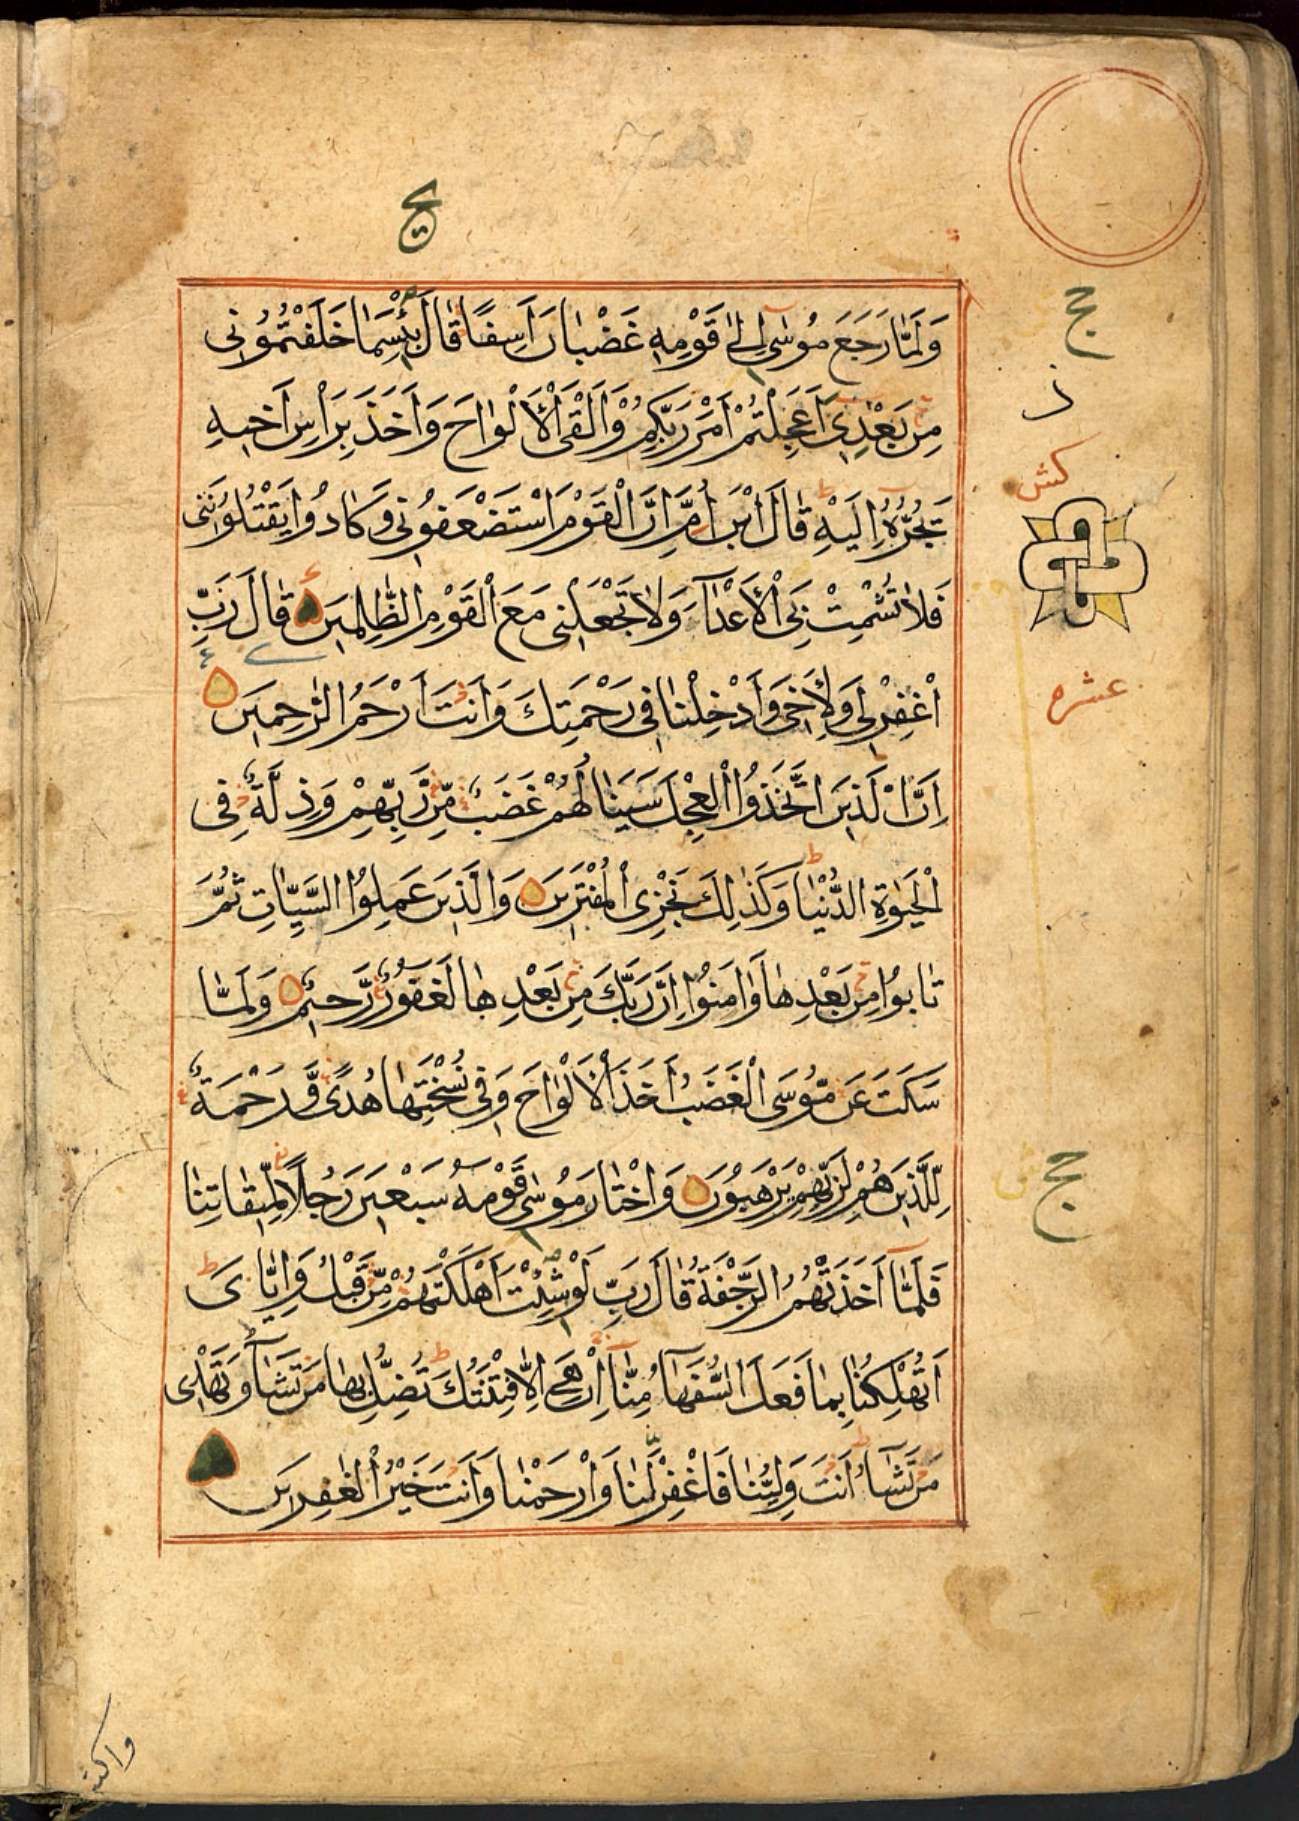 ج
وَلَمَّا رَجَعَ مُوسٰى اِلٰى قَوْمِهٖ غَضْبَانَ اَسِفًا قَالَ بِئْسَمَا خَلَفْتُمُوْنٖى
مِنْ بَعْدٖى اَعَجِلْتُمْ اَمْرَ رَبِّكُمْ وَاَلْقَى الْاَلْوَاحَ وَاَخَذَ بِرَاْسِ اَخٖيهِ
يَجُرُّهُ اِلَيْهِ قَالَ ابْنَ اُمَّ اِنَّ الْقَوْمَ اسْتَضْعَفُوْنٖى وَكَادُوا يَقْتُلُوْنَنٖى
فَلَا تُشْمِتْ بِىَ الْاَعْدَآءَ وَلَا تَجْعَلْنٖى مَعَ الْقَوْمِ الظّٰلِمٖينَ قَالَ رَبِّ
اغْفِرْ لٖى وَلِاَخٖى وَاَدْخِلْنَا فٖى رَحْمَتِكَ وَاَنْتَ اَرْحَمُ الرّٰحِمٖينَ
اِنَّ الَّذٖينَ اتَّخَذُوا الْعِجْلَ سَيَنَالُهُمْ غَضَبٌ مِّنْ رَّبِّهِمْ وَذِلَّةٌ فِى
الْحَيٰوةِ الدُّنْيَا وَكَذٰلِكَ نَجْزِى الْمُفْتَرٖينَ وَالَّذٖينَ عَمِلُوا السَّيِّاٰتِ ثُمَّ
تَابُوا مِنْ بَعْدِهَا وَاٰمَنُوْا اِنَّ رَبَّكَ مِنْ بَعْدِهَا لَغَفُوْرٌ رَّحٖيْمٌ وَلَمَّا
سَكَتَ عَنْ مُّوسَى الْغَضَبُ اَخَذَ الْاَلْوَاحَ وَفٖى نُسْخَتِهَا هُدًى وَّرَحْمَةٌ
لِّلَّذٖينَ هُمْ لِرَبِّهِمْ يَرْهَبُوْنَ وَاخْتَارَ مُوسٰى قَوْمَهُ سَبْعٖينَ رَجُلًا لِّمٖيقَاتِنَا
فَلَمَّا اَخَذَتْهُمُ الرَّجْفَةُ قَالَ رَبِّ لَوْ شِئْتَ اَهْلَكْتَهُمْ مِّنْ قَبْلُ وَاِيَّاىَ
اَتُهْلِكُنَا بِمَا فَعَلَ السُّفَهَآءُ مِنَّا اِنْ هِىَ اِلَّا فِتْنَتُكَ تُضِلُّ بِهَا مَنْ تَشَآءُ وَتَهْدٖى
مَنْ تَشَآءُ اَنْتَ وَلِيُّنَا فَاغْفِرْ لَنَا وَارْحَمْنَا وَاَنْتَ خَيْرُ الْغٰفِرٖينَ
ج
كش
عشره
ج
واكتب